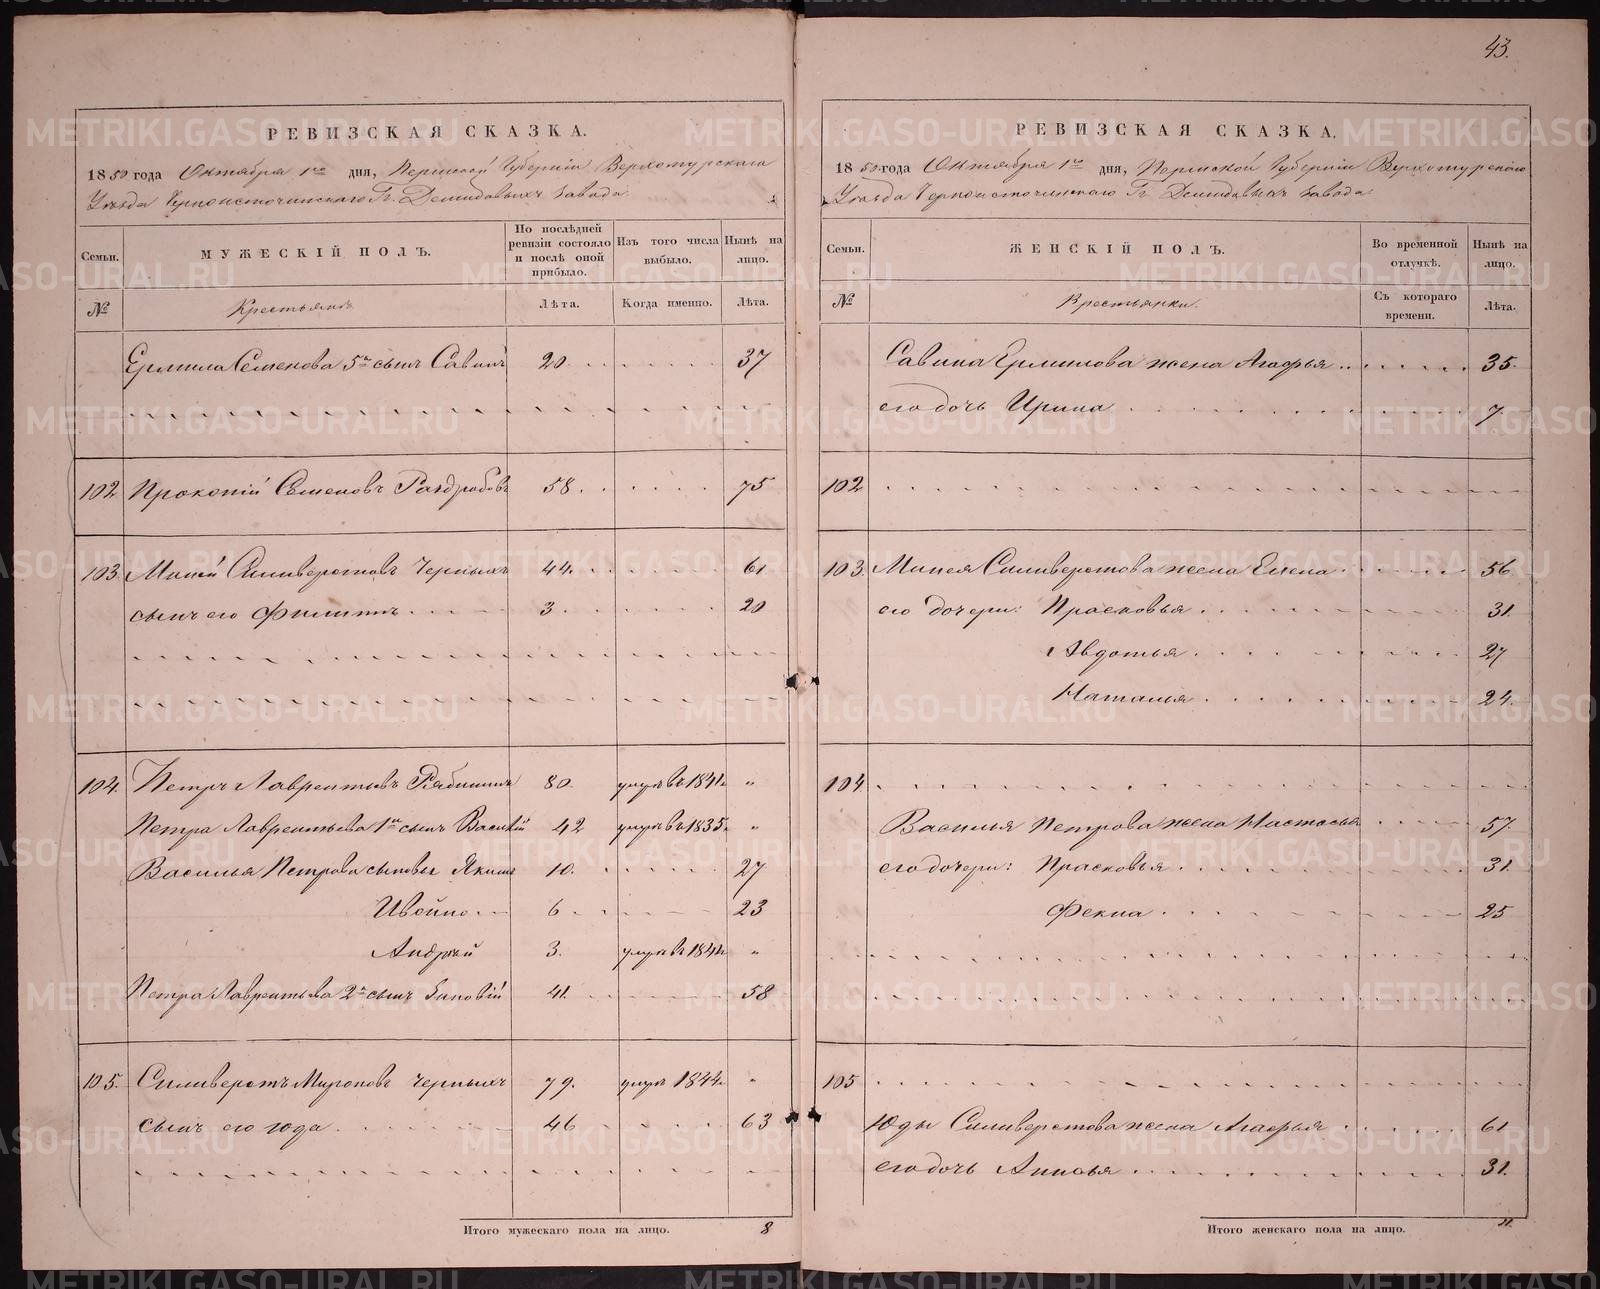 43.
РЕВИЗСКАЯ СКАЗКА.
1850 года Октября 1го дня, Пермской Губернiи Верхотурскаго
Уѣзда Черноисточинскаго Гг. Демидовыхъ завода.
Семьи.
МУЖЕСКIЙ ПОЛЪ.
По послѣдней ревизiи состояло и послѣ оной прибыло.
Изъ того числа выбыло.
Нынѣ на лицо.
№
Крестьянъ
Лѣта.
Когда именно.
Лѣта.
Ермила Семенова 5й сынъ Савинъ 20 37
102 Прокопiй Семеновъ Раздробовъ 58. 75
103. Миней Силиверстовъ Черныхъ 44. 61
сынъ его Филиппъ 3. 20
104. Петръ Лаврентьевъ Рябининъ 80. умре въ 1841. "
Петра Лаврентьева 1й сынъ Василiй 42 умре въ 1835. "
Василья Петрова сыновья Якимъ 10. 27
Ивойло 6 23
Андрей 3. умре въ 1844 "
Петра Лаврентьева 2й сынъ Зиновiй 41. 58
105. Силиверстъ Мироновъ Черныхъ 79. умре 1844. "
сынъ его Юда 46 63
Итого мужескаго пола на лицо. 8
РЕВИЗСКАЯ СКАЗКА.
1850 года Октября 1го дня, Пермской Губернiи Верхотурскаго
Уѣзда Черноисточинскаго Гг. Демидовыхъ завода
Семьи.
ЖЕНСКIЙ ПОЛЪ.
Во временной отлучкѣ.
Нынѣ на лицо.
№
Крестьянки.
Съ котораго времени.
Лѣта.
Савина Ермилова жена Агафья 35.
его дочь Ирина 7.
102
103. Минея Силиверстова жена Елена 56
его дочери: Прасковья 31.
Авдотья 27
Наталья 24.
104
Василья Петрова жена Настасья 57.
его дочери: Прасковья 31.
Фекла 25
105
Юды Силиверстова жена Агафья 61
его дочь Анисья 31.
Итого женскаго пола на лицо. 11.
METRIKI.GASO-URAL.RU